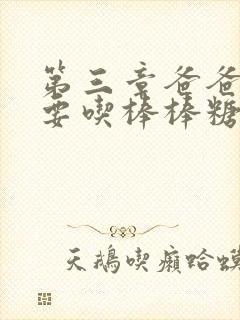 第三章爸爸
要喫棒棒糖
天鵝喫癩蛤蟆